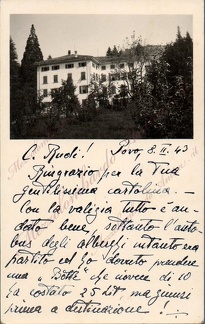 C. Rudi! Povo, 8. II. 43
Ringrazio per la Tua
gentilissima cartolina. —
Con la valigia tutto è an-
dato bene, soltanto l'auto-
bus degli alberghi intanto era
partito ed ho dovuto prendere
una che invece di 10
ha costato 25 Lit, ma
prima a destinazione!